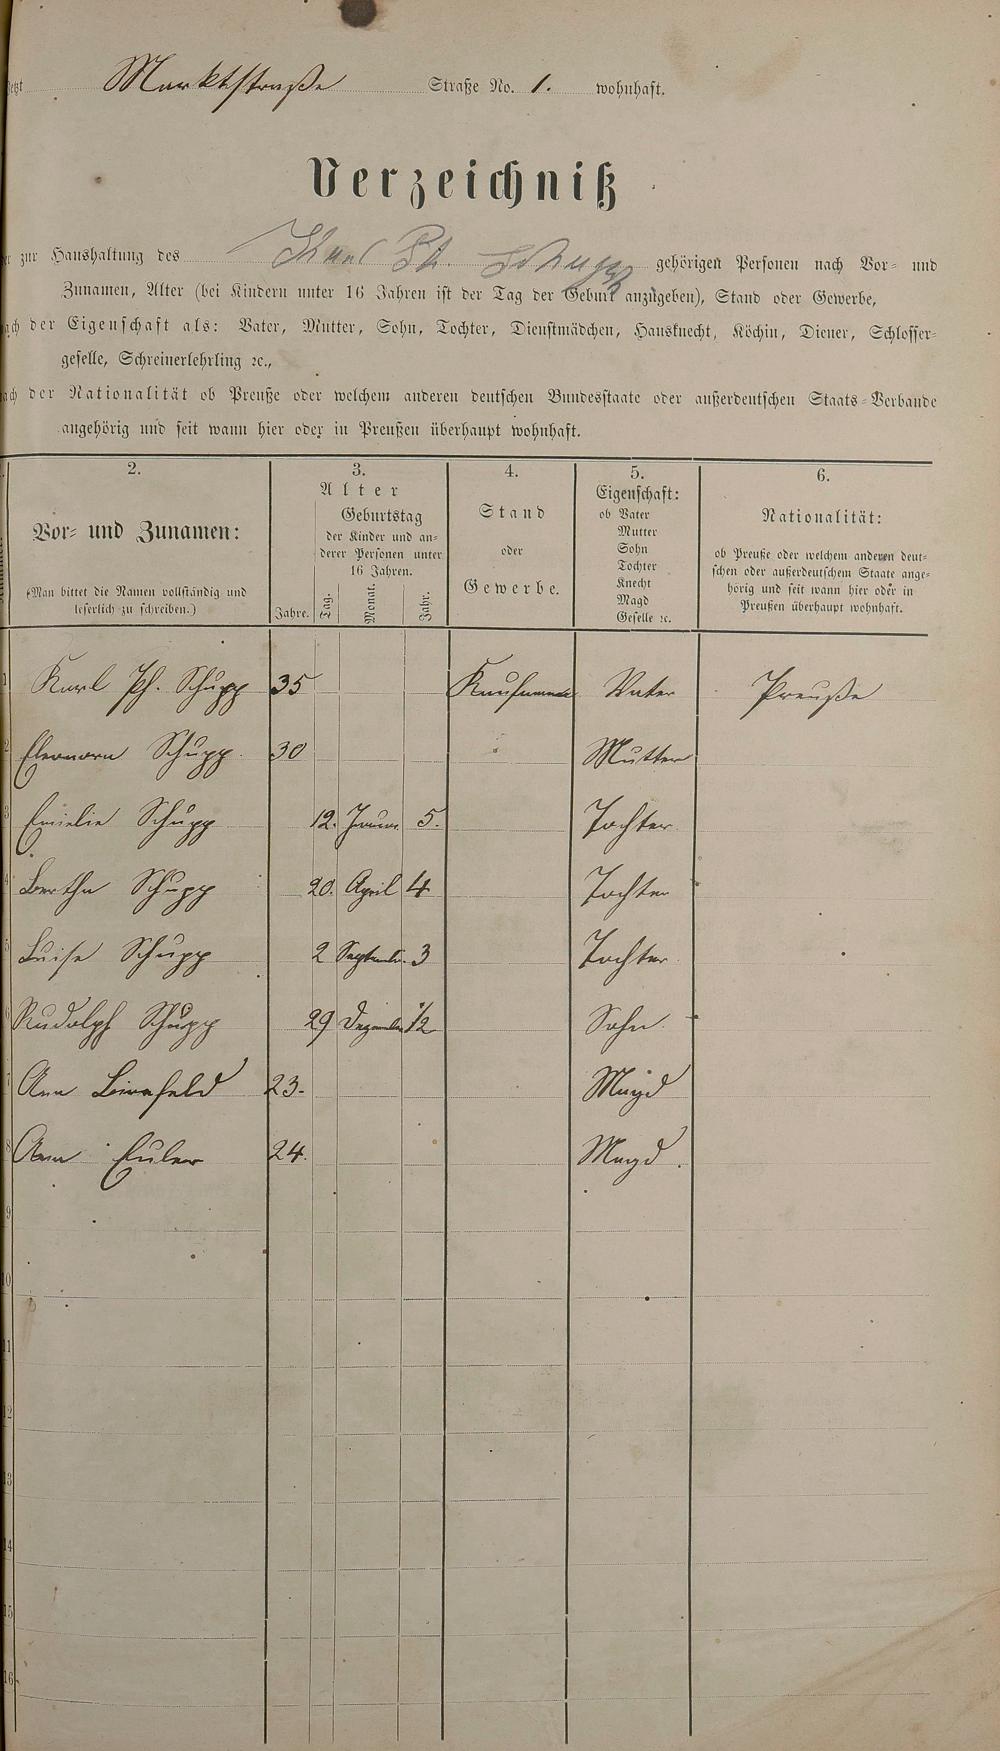 Marktstraße Straße No. 1. wohnhaft.
Verzeichniß
zur Haushaltung des Karl Ph. Schupp gehörigen Personen nach Vor- und
Zunamen, Alter (bei Kindern unter 16 Jahren ist der Tag der Geburt anzugeben), Stand oder Gewerbe,
der Eigenschaft als: Vater, Mutter, Sohn, Tochter, Dienstmädchen, Hausknecht, Köchin, Diener, Schlosser-
geselle, Schreinerlehrling ꝛc.,
der Nationalität ob Preuße oder welchem anderen deutschen Bundesstaate oder außerdeutschen Staats-Verbande
angehörig und seit wann hier oder in Preußen überhaupt wohnhaft.
2. 3. 4. 5. 6.
Vor- und Zunamen:
(Man bittet die Namen vollständig und
leserlich zu schreiben.)
Alter
Jahre.
Geburtstag
der Kinder und an-
derer Personen unter
16 Jahren.
Tag. Monat. Jahr.
Stand
oder
Gewerbe.
Eigenschaft:
ob Vater
Mutter
Sohn
Tochter
Knecht
Magd
Geselle ꝛc.
Nationalität:
ob Preuße oder welchem anderen deut-
schen oder außerdeutschem Staate ange-
hörig und seit wann hier oder in
Preußen überhaupt wohnhaft.
1 Karl Ph. Schupp 35 Kaufmann Vater Preuße
2 Eleonora Schupp 30 Mutter
3 Emielie Schupp 12. Januar 5. Tochter
4 Bertha Schupp 20. April 4 Tochter
5 Luise Schupp 2 September 3 Tochter
6 Rudolph Schupp 29 Dezember 1/2 Sohn
7 Ann 23. Magd
8 Ann Euler 24. Magd
9
10
11
12
13
14
15
16